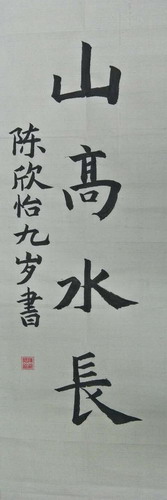 山高水長
陈欣怡九岁書